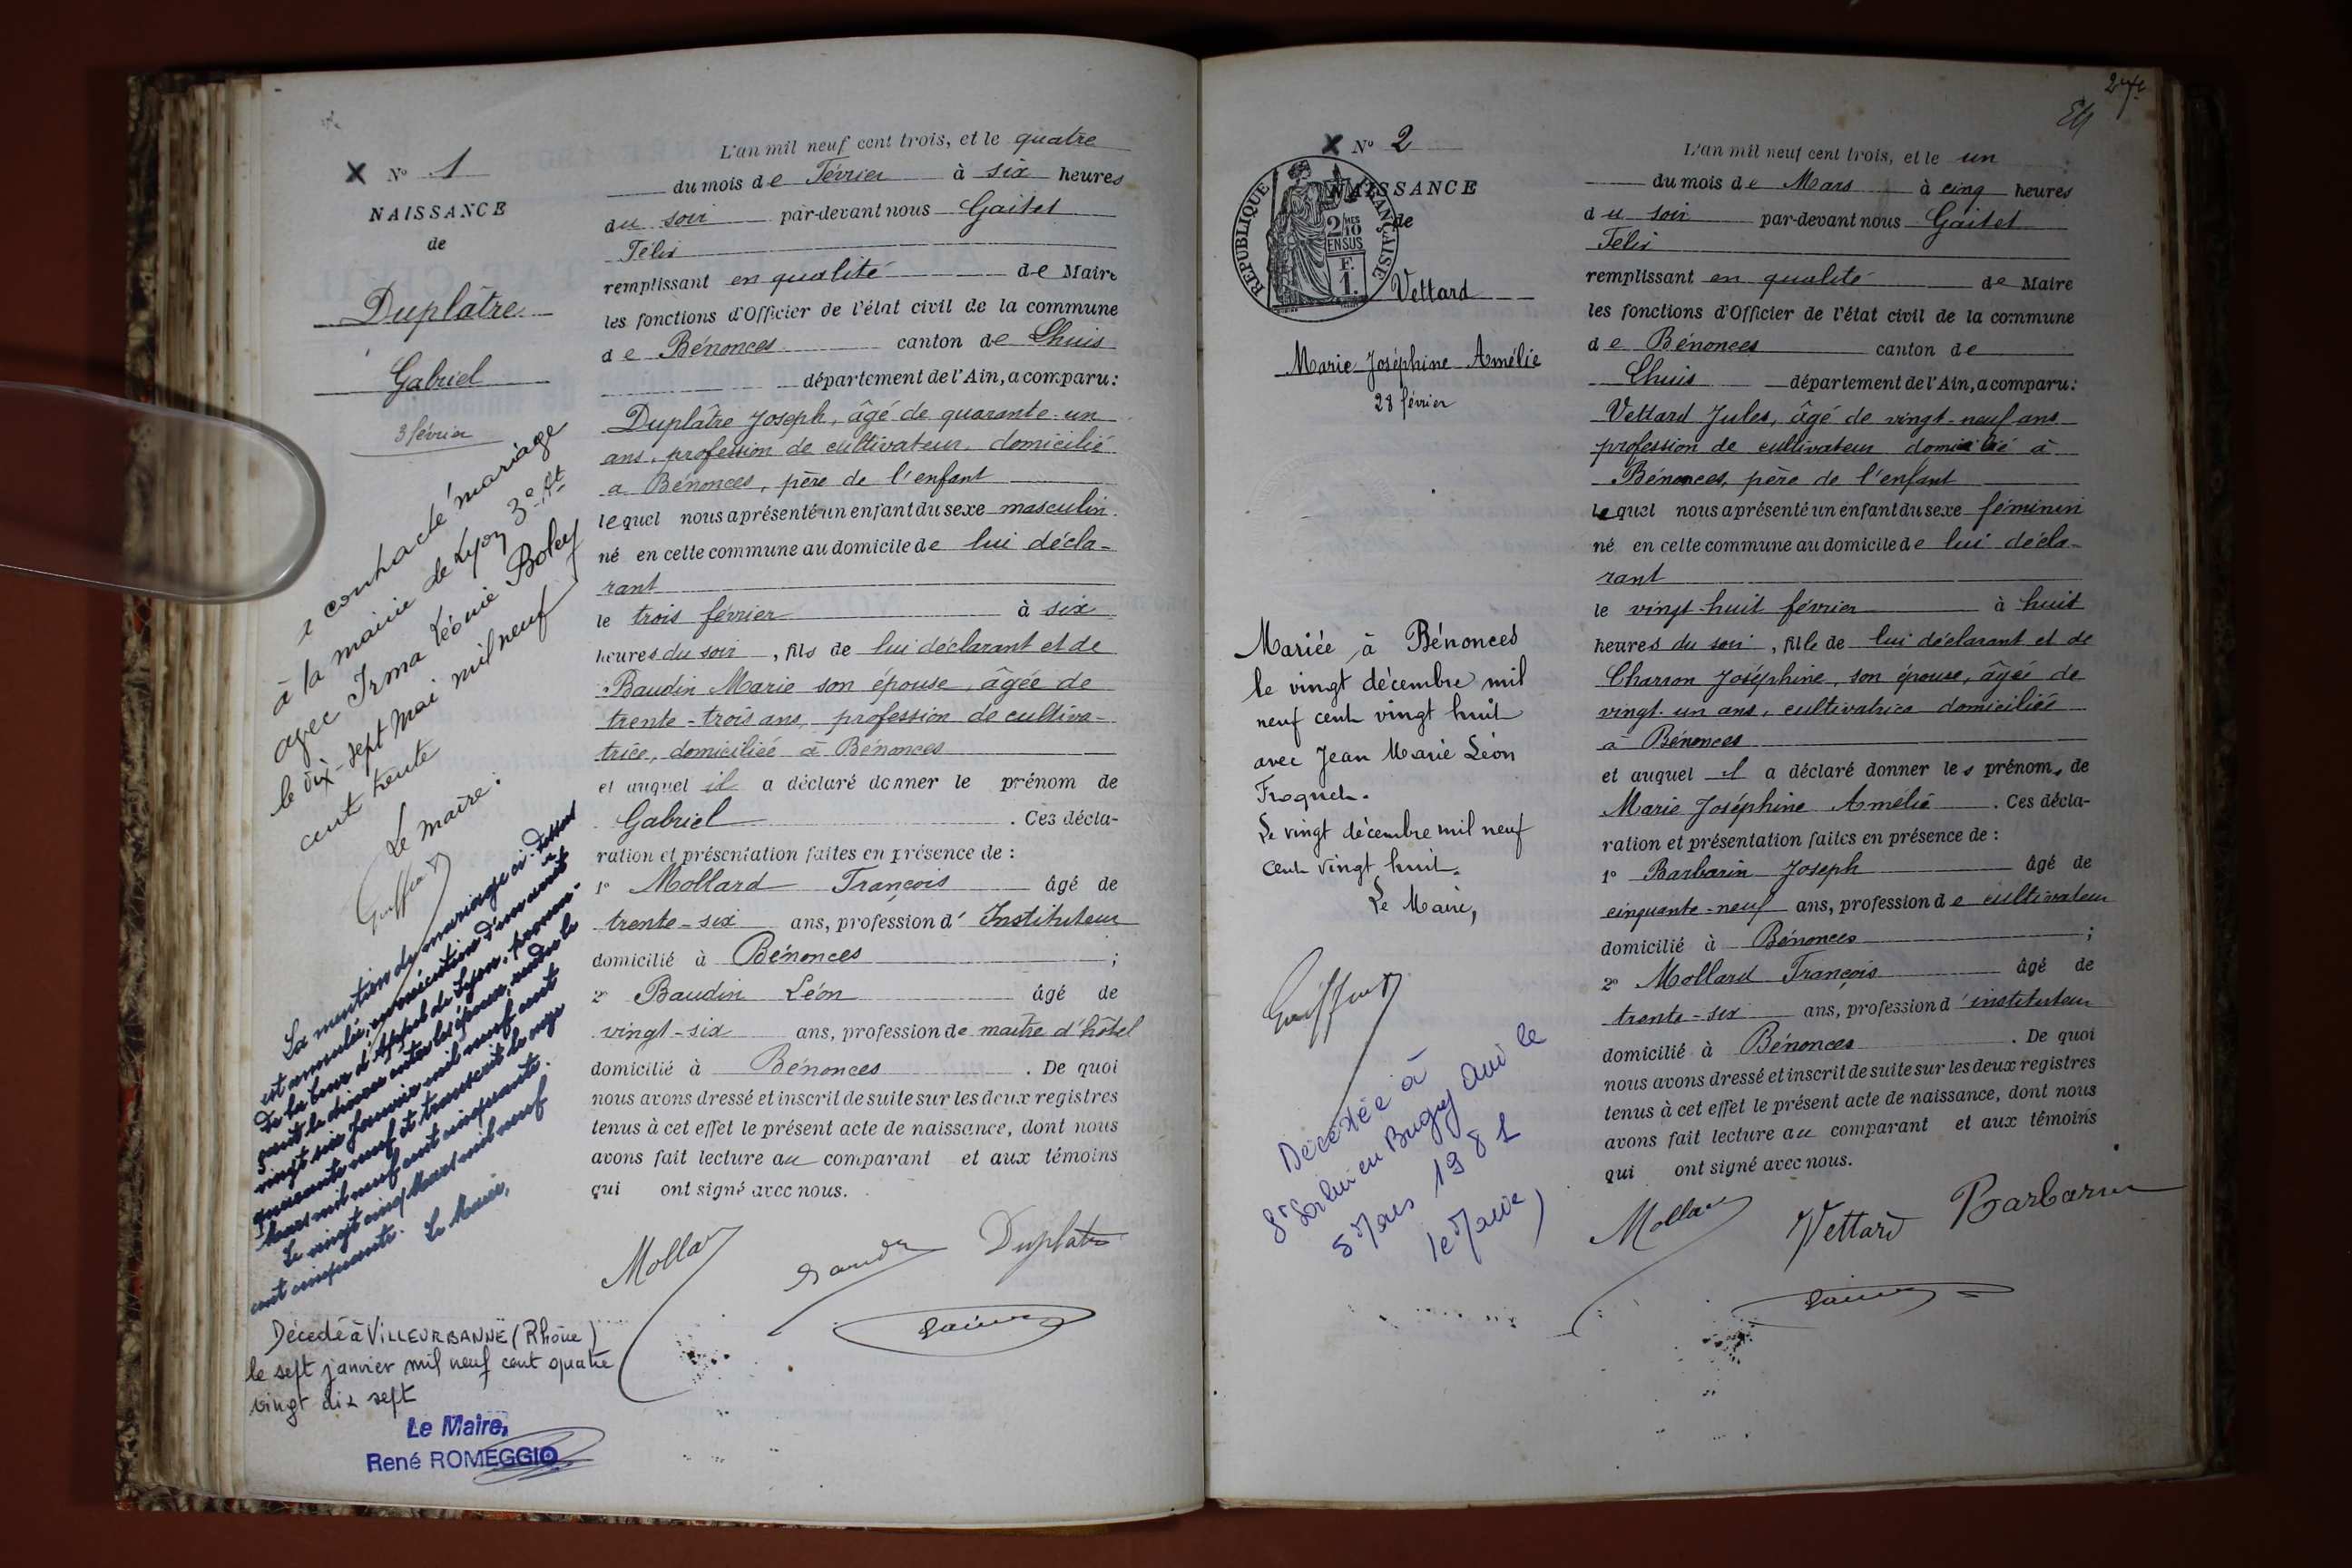 N° 1
NAISSANCE
de
Duplâtre
Gabriel
3 février
a contracté mariage
à la mairie de Lyon 3e At
avec Irma Léonie Boley
le dix-sept Mai mil neuf
cent trente
Le maire:
La mention du mariage ci-dessus
est annulée, en exécution d'un arrêt
de la Cour d'Appel de Lyon, pronon-
çant le divorce entre les époux, rendu le
vingt six Janvier mil neuf cent
quarante neuf et transcrit le onze
Mars mil neuf cent cinquante.
Le vingt cinq Mars mil neuf
cent cinquante. Le Maire,
Décédé à VILLEURBANNE (Rhône)
le sept janvier mil neuf cent quatre
vingt dix sept
Le Maire,
René ROMEGGIO
L'an mil neuf cent trois, et le quatre
du mois de Février à six heures
du soir par-devant nous Gaitet
Félix
remplissant en qualité de Maire
les fonctions d'Officier de l'état civil de la commune
de Bénonces canton de Lhuis
département de l'Ain, a comparu:
Duplâtre Joseph, âgé de quarante-un
ans, profession de cultivateur, domicilié
à Bénonces, père de l'enfant
lequel nous a présenté un enfant du sexe masculin
né en cette commune au domicile de lui décla-
rant
le trois février à six
heures du soir, fils de lui déclarant et de
Baudin Marie son épouse, âgée de
trente-trois ans, profession de cultiva-
trice, domiciliée à Bénonces
et auquel il a déclaré donner le prénom de
Gabriel. Ces décla-
ration et présentation faites en présence de:
1° Mollard François âgé de
trente-six ans, profession d'Instituteur
domicilié à Bénonces;
2° Baudin Léon âgé de
vingt-six ans, profession de maître d'hôtel
domicilié à Bénonces. De quoi
nous avons dressé et inscrit de suite sur les deux registres
tenus à cet effet le présent acte de naissance, dont nous
avons fait lecture au comparant et aux témoins
qui ont signé avec nous.
Mollard Baudin Duplatre
Gaitet
274
N° 2
NAISSANCE
de
RÉPUBLIQUE FRANÇAISE
2/10MES
EN SUS
F.
1.
Vettard
Marie Joséphine Amélie
28 février
Mariée à Bénonces
le vingt décembre mil
neuf cent vingt huit
avec Jean Marie Léon
Froquet.
Le vingt décembre mil neuf
cent vingt huit.
Le Maire,
Décédée à
St Sorlin en Bugey Ain le
5 Mars 1981
le Maire
L'an mil neuf cent trois, et le un
du mois de Mars à cinq heures
du soir par-devant nous Gaitet
Félix
remplissant en qualité de Maire
les fonctions d'Officier de l'état civil de la commune
de Bénonces canton de
Lhuis département de l'Ain, a comparu:
Vettard Jules, âgé de vingt-neuf ans
profession de cultivateur domicilié à
Bénonces, père de l'enfant
lequel nous a présenté un enfant du sexe féminin
né en cette commune au domicile de lui décla-
rant
le vingt-huit février à huit
heures du soir, fille de lui déclarant et de
Charron Joséphine, son épouse, âgée de
vingt-un ans, cultivatrice domiciliée
à Bénonces
et auquel il a déclaré donner les prénoms de
Marie Joséphine Amélie. Ces décla-
ration et présentation faites en présence de:
1° Barbarin Joseph âgé de
cinquante-neuf ans, profession de cultivateur
domicilié à Bénonces;
2° Mollard François âgé de
trente-six ans, profession d'instituteur
domicilié à Bénonces. De quoi
nous avons dressé et inscrit de suite sur les deux registres
tenus à cet effet le présent acte de naissance, dont nous
avons fait lecture au comparant et aux témoins
qui ont signé avec nous.
Mollard Vettard Barbarin
Gaitet